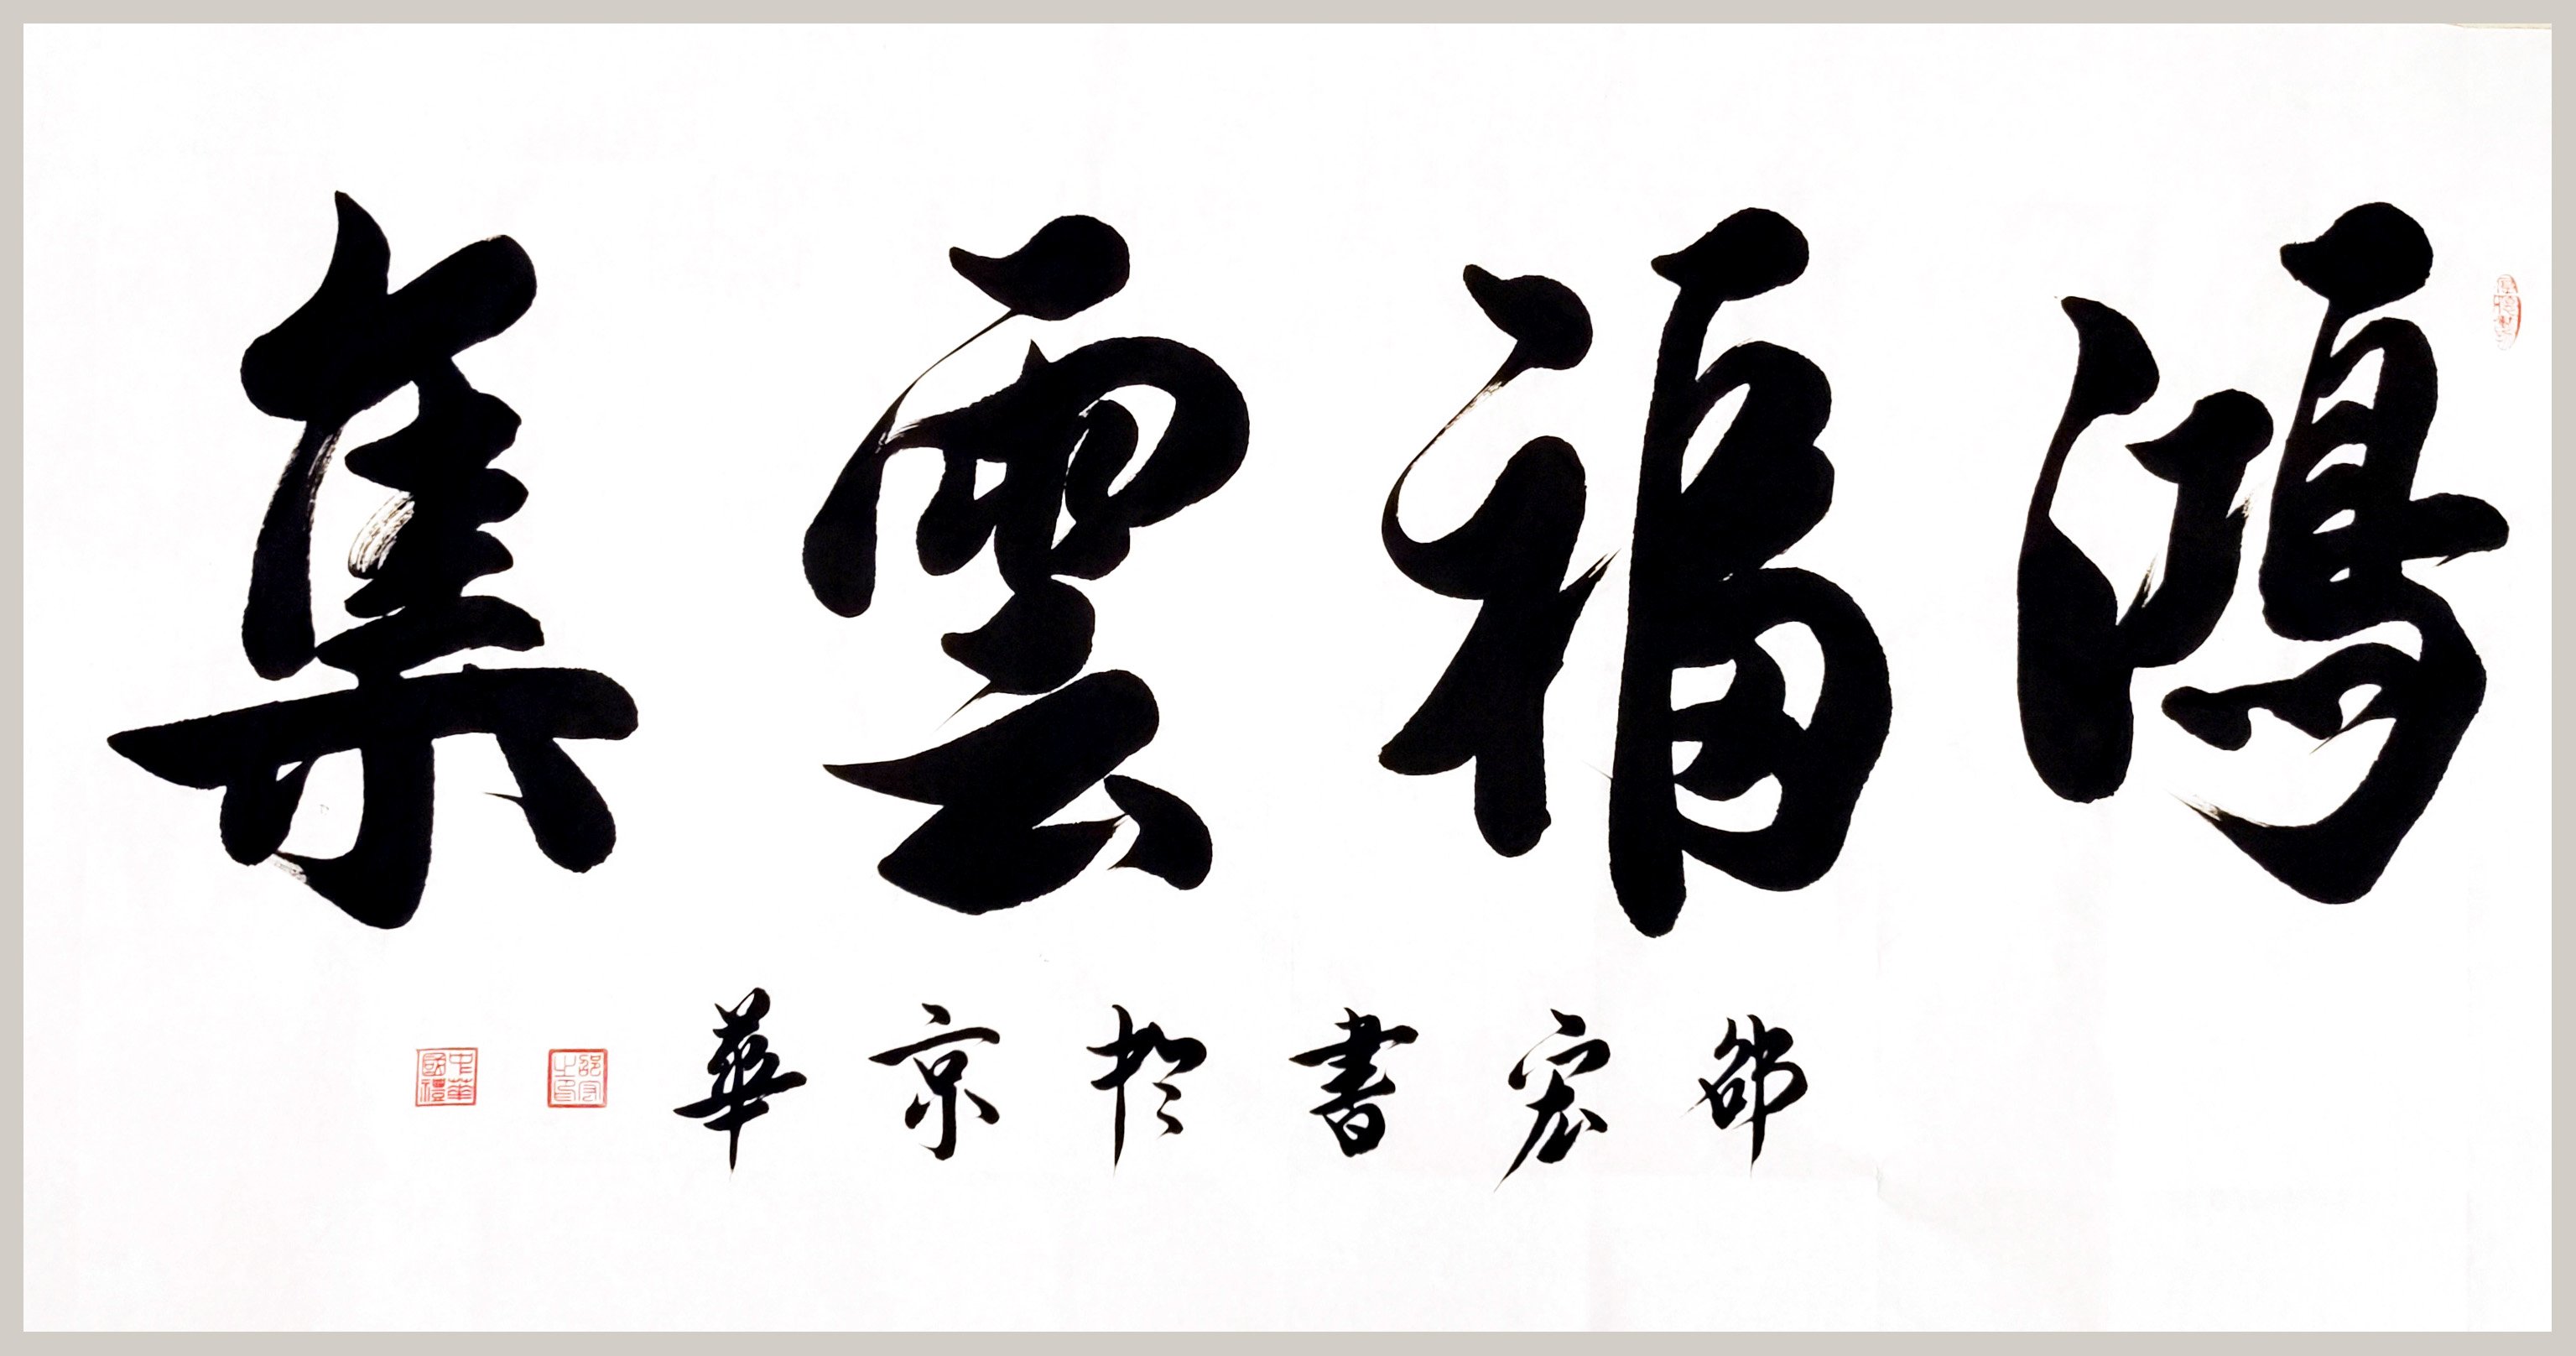 鴻福雲集
邵宏書於京華
邵宏之印
中華國禮